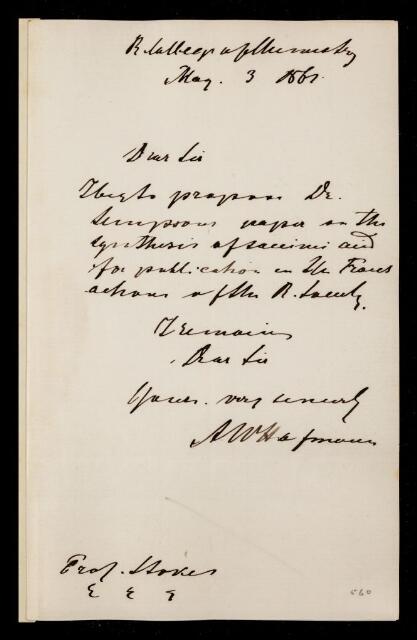 R. College of Chemistry
May. 3 1861.
Dear Sir
I beg to propose Dr.
Simpsons paper on the
synthesis of succinic acid
for publication in the Trans
actions of the R. Society.
I remain
Dear Sir
Yours very sincerely
AWHofmann
Prof. Stokes
560